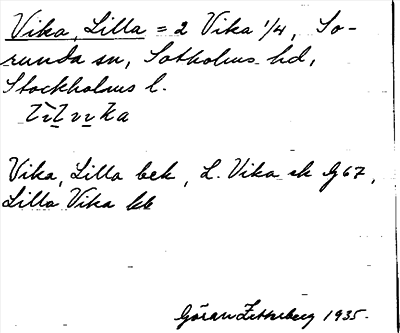 Vika, Lilla = 2 Vika 1/4, So-
runda sn, Sotholms hd,
Stockholms l.
Vika, Lilla bek, L. Vika sk G67,
Lilla Vika kb
Göran Zetterberg 1935.